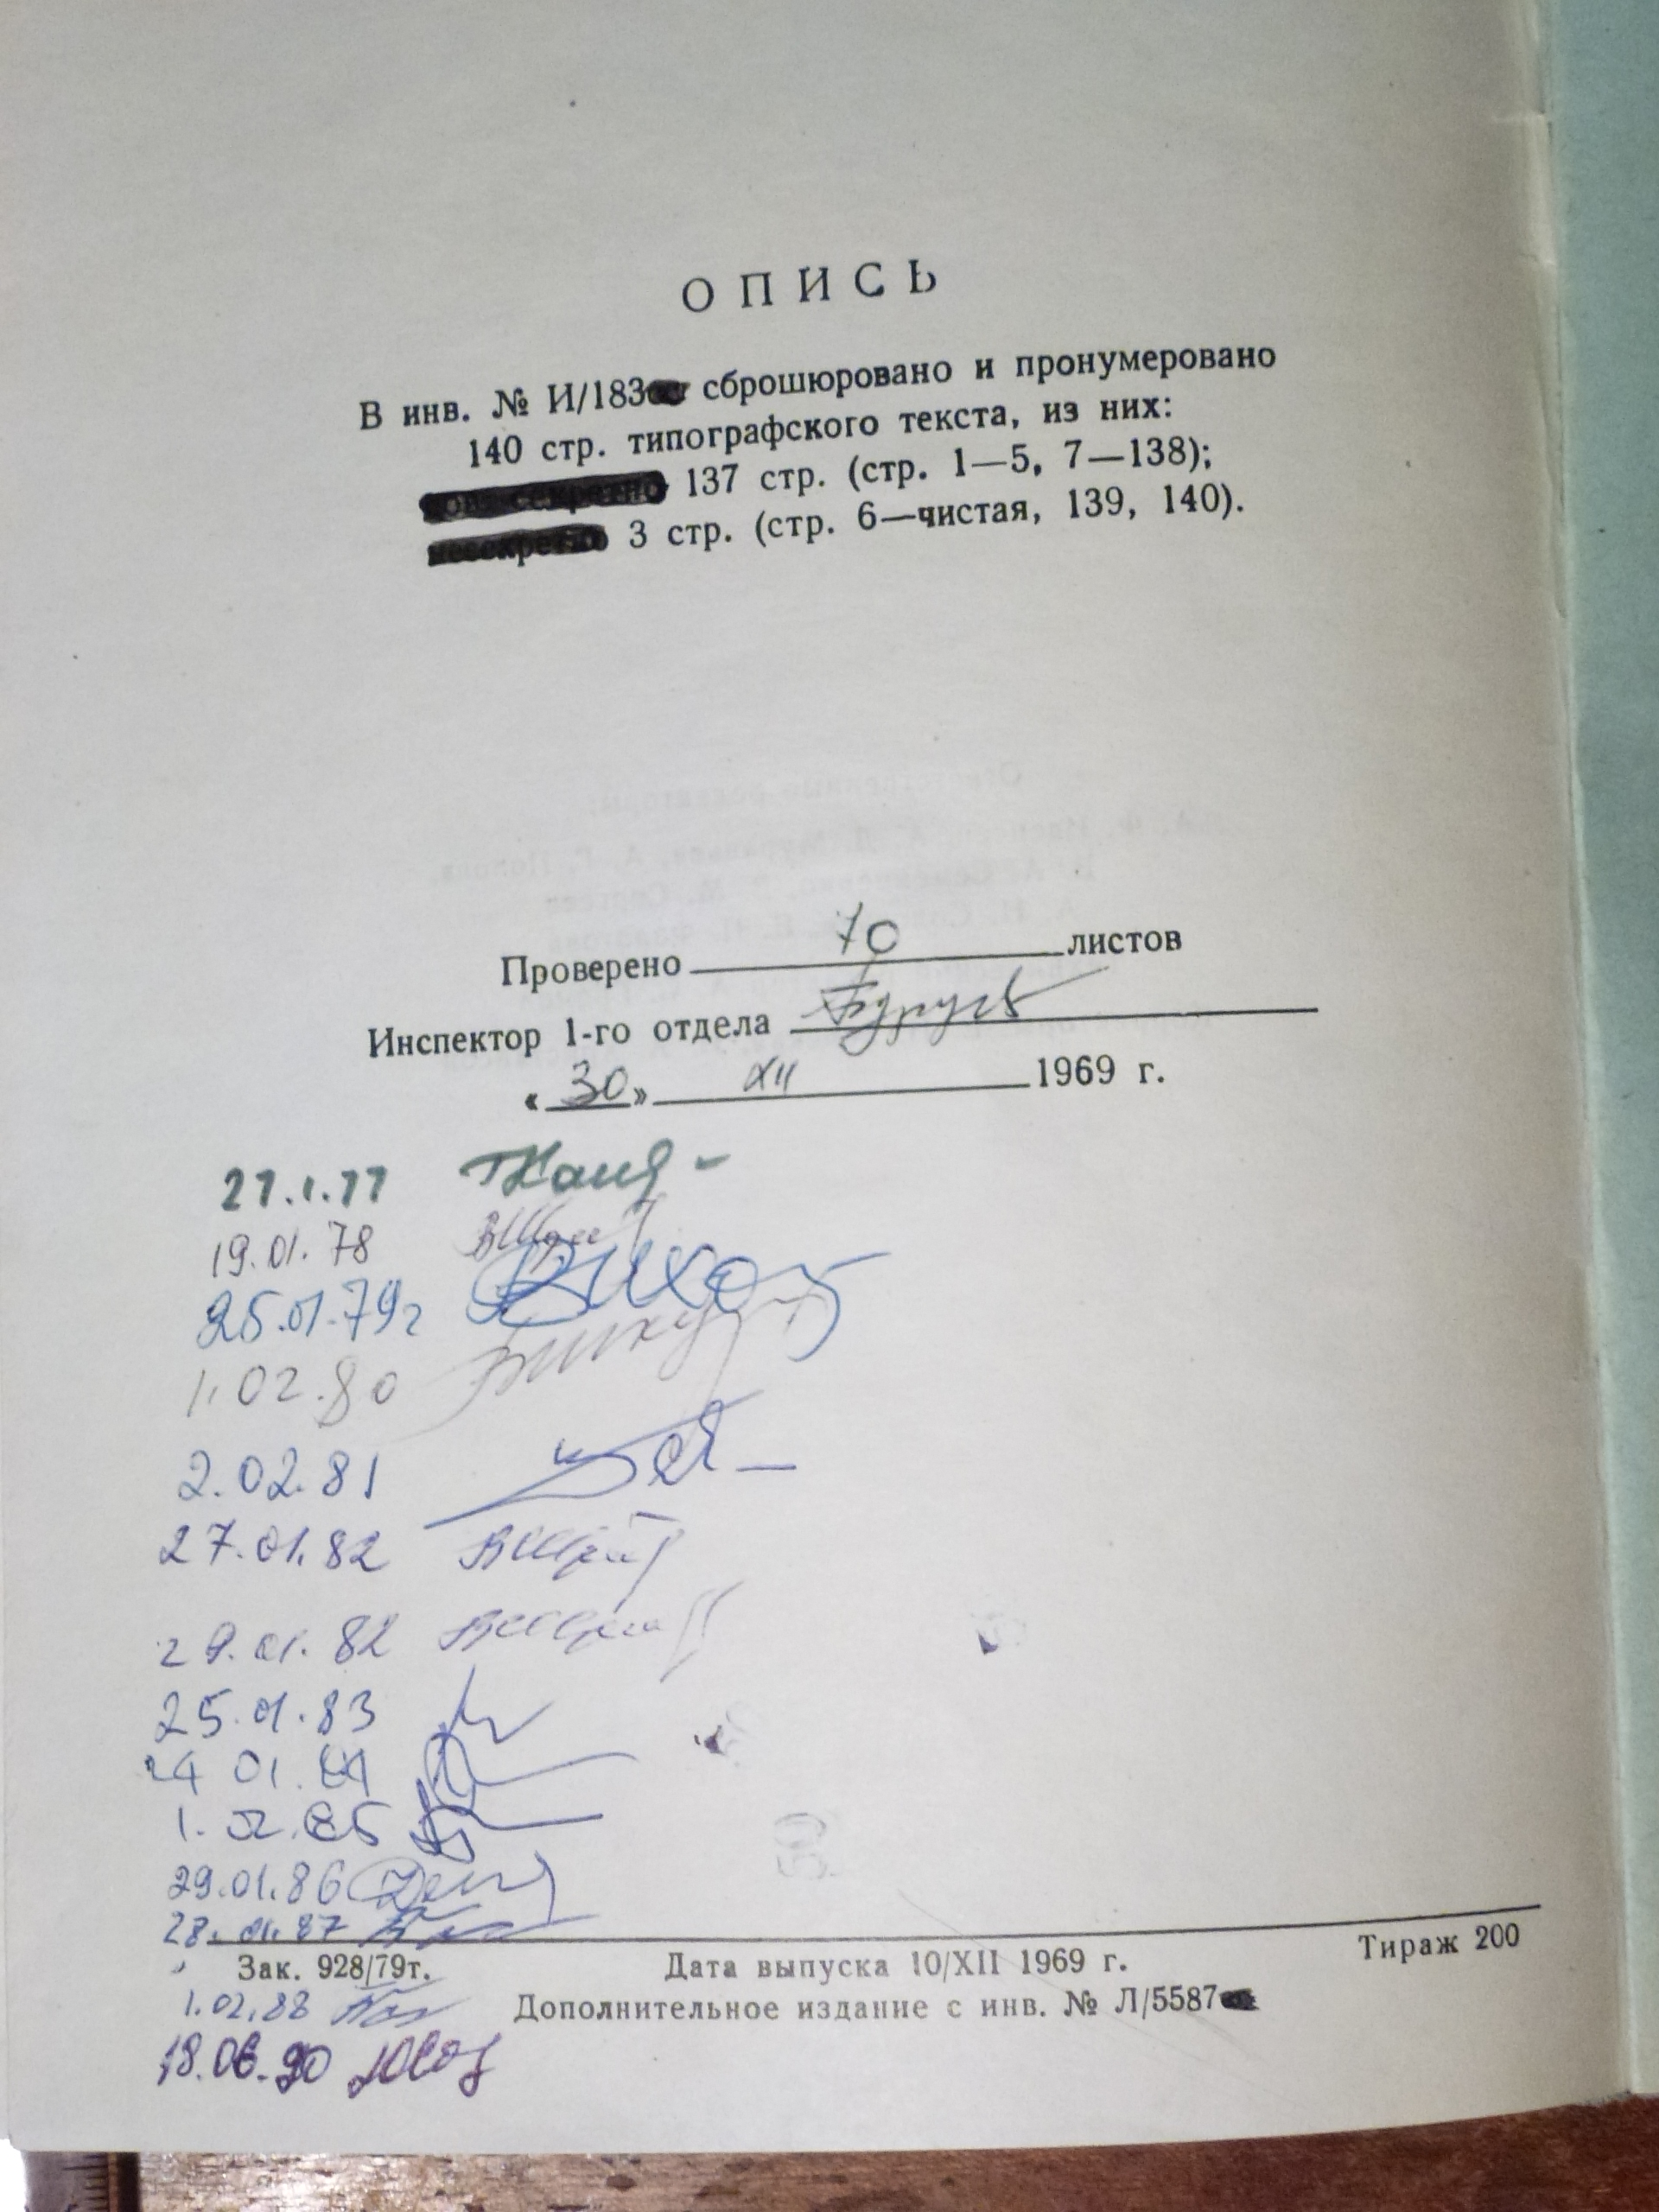 ОПИСЬ
В инв. № И/183 сброшюровано и пронумеровано
140 стр. типографского текста, из них:
секретно 137 стр. (стр. 1—5, 7—138);
несекретно 3 стр. (стр. 6—чистая, 139, 140).
Проверено 70 листов
Инспектор 1-го отдела
«30» XII 1969 г.
27.1.77
19.01.78
25.01.79г
1.02.80
2.02.81
27.01.82
29.01.82
25.01.83
24 01.84
1.02.85
29.01.86
28.01.87
Зак. 928/79т. Дата выпуска 10/XII 1969 г. Тираж 200
1.02.88 Дополнительное издание с инв. № Л/5587
18.06.90